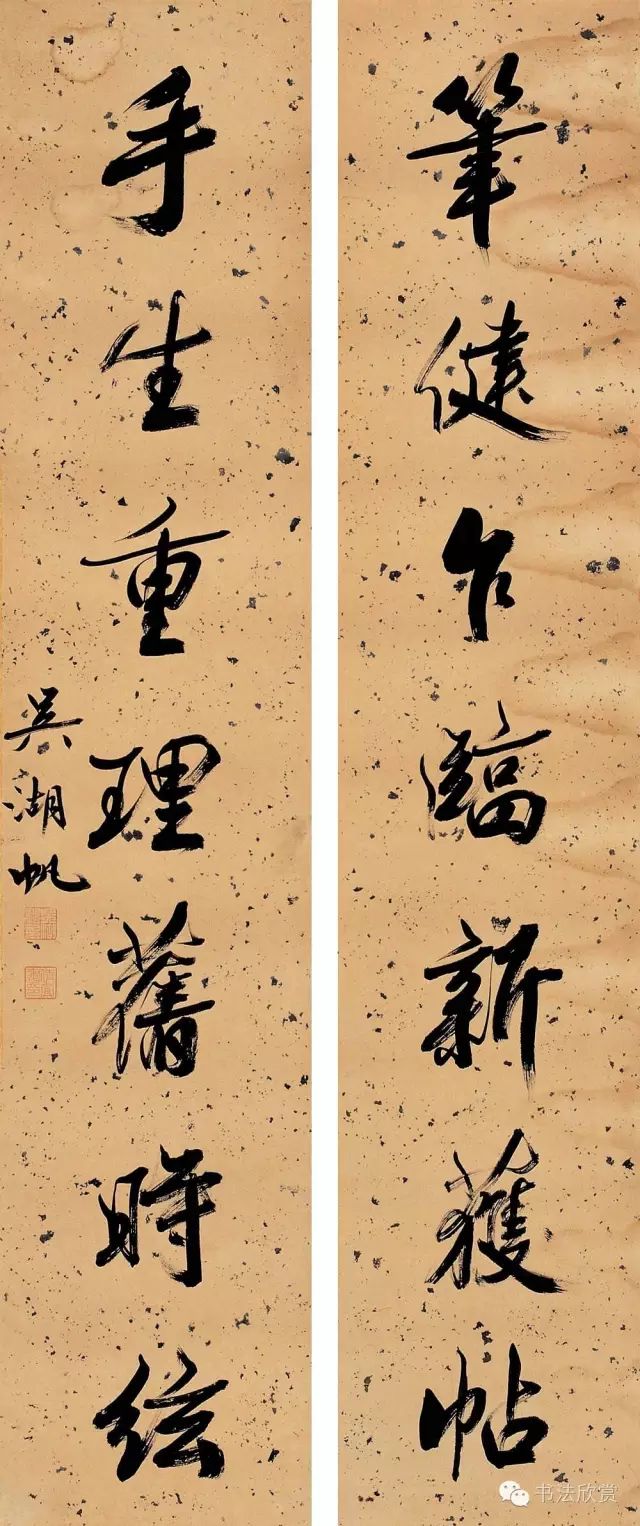 筆健乍臨新獲帖
手生重理舊時絃
吳湖帆
书法欣赏